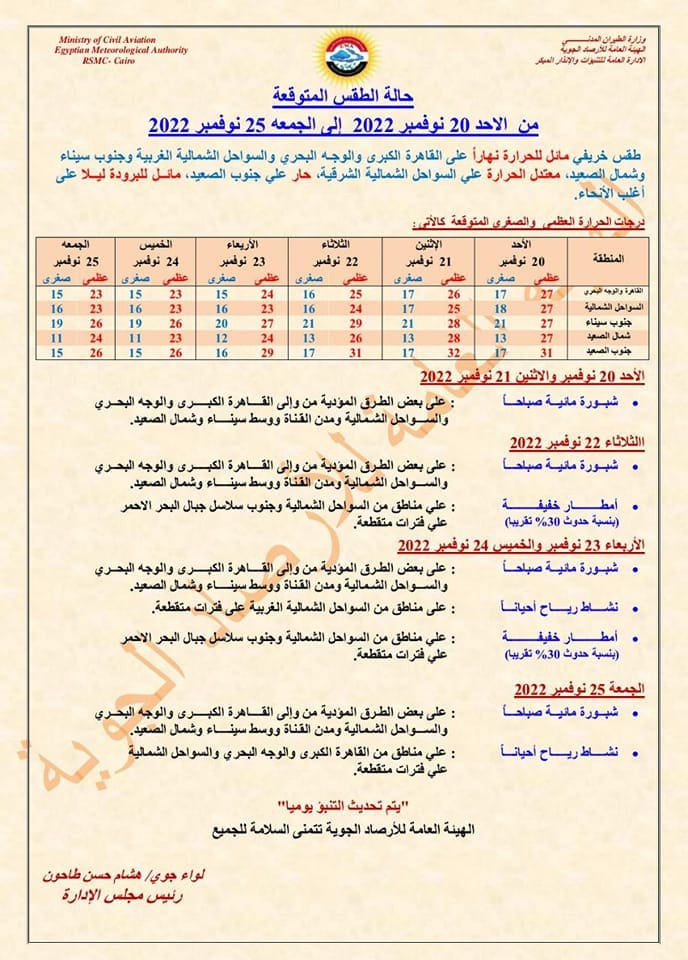 Ministry of Civil Aviation
Egyptian Meteorological Authority
RSMC- Cairo
وزارة الطيران المدنـــي
الهيئة العامة للأرصاد الجوية
الادارة العامة للتنبؤات والإنذار المبكر
حالة الطقس المتوقعة
من الاحد 20 نوفمبر 2022 إلى الجمعه 25 نوفمبر 2022
طقس خريفي مائل للحرارة نهاراً على القاهرة الكبرى والوجه البحري والسواحل الشمالية الغربية وجنوب سيناء
وشمال الصعيد، معتدل الحرارة علي السواحل الشمالية الشرقية، حار علي جنوب الصعيد، مائل للبرودة ليلا على
أغلب الأنحاء.
درجات الحرارة العظمي والصغري المتوقعة كالأتي:
المنطقة الأحد الإثنين الثلاثاء الأربعاء الخميس الجمعه
20 نوفمبر 21 نوفمبر 22 نوفمبر 23 نوفمبر 24 نوفمبر 25 نوفمبر
عظمى صغرى عظمى صغرى عظمى صغرى عظمى صغرى عظمى صغرى عظمى صغرى
القاهرة والوجه البحري 27 17 26 17 25 16 24 15 23 15 23 15
السواحل الشمالية 27 18 25 17 24 16 23 16 23 16 23 16
جنوب سيناء 27 21 28 21 29 21 27 20 26 19 26 19
شمال الصعيد 27 13 28 13 26 13 24 12 23 11 24 11
جنوب الصعيد 31 17 32 17 31 17 29 16 26 15 26 15
الأحد 20 نوفمبر والاثنين 21 نوفمبر 2022
• شبورة مائية صباحاً : على بعض الطرق المؤدية من وإلى القاهرة الكبرى والوجه البحري
والسواحل الشمالية ومدن القناة ووسط سيناء وشمال الصعيد.
االثلاثاء 22 نوفمبر 2022
• شبورة مائية صباحاً : على بعض الطرق المؤدية من وإلى القاهرة الكبرى والوجه البحري
والسواحل الشمالية ومدن القناة ووسط سيناء وشمال الصعيد.
• أمطار خفيفة : علي مناطق من السواحل الشمالية وجنوب سلاسل جبال البحر الاحمر
(بنسبة حدوث 30% تقريبا) علي فترات متقطعة.
الأربعاء 23 نوفمبر والخميس 24 نوفمبر 2022
• شبورة مائية صباحاً : على بعض الطرق المؤدية من وإلى القاهرة الكبرى والوجه البحري
والسواحل الشمالية ومدن القناة ووسط سيناء وشمال الصعيد.
• نشاط رياح أحياناً : علي مناطق من السواحل الشمالية الغربية على فترات متقطعة.
• أمطار خفيفة : علي مناطق من السواحل الشمالية وجنوب سلاسل جبال البحر الاحمر
(بنسبة حدوث 30% تقريبا) علي فترات متقطعة.
الجمعة 25 نوفمبر 2022
• شبورة مائية صباحاً : على بعض الطرق المؤدية من وإلى القاهرة الكبرى والوجه البحري
والسواحل الشمالية ومدن القناة ووسط سيناء وشمال الصعيد.
• نشاط رياح أحياناً : علي مناطق من القاهرة الكبرى والوجه البحري والسواحل الشمالية
علي فترات متقطعة.
"يتم تحديث التنبؤ يوميا"
الهيئة العامة للأرصاد الجوية تتمنى السلامة للجميع
لواء جوي/ هشام حسن طاحون
رئيس مجلس الإدارة
الهيئة العامة للأرصاد الجوية